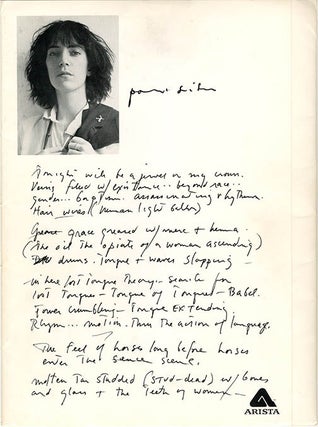 patti smith
Tonight will be a jewel in my crown.
Veins filled w/existence.. beyond race..
gender... baptism. assassinating rhythm.
Hair wires (human light bulbs)
grace greased w/merc + henna.
(the oil the opiate of a woman ascending)
drums. Tongue + waves slapping -
in here lost Tongue Theory. search for
lost Tongue - Tongue of Tongues - Babel.
Tower crumbling - Tongue EXTending.
Rhythm... motion. Thru the action of language.
The feel of horses long before horses
enter the scene.
molten Tar studded (stud-dead) w/ bones
and glass + the Teeth of women -
ARISTA